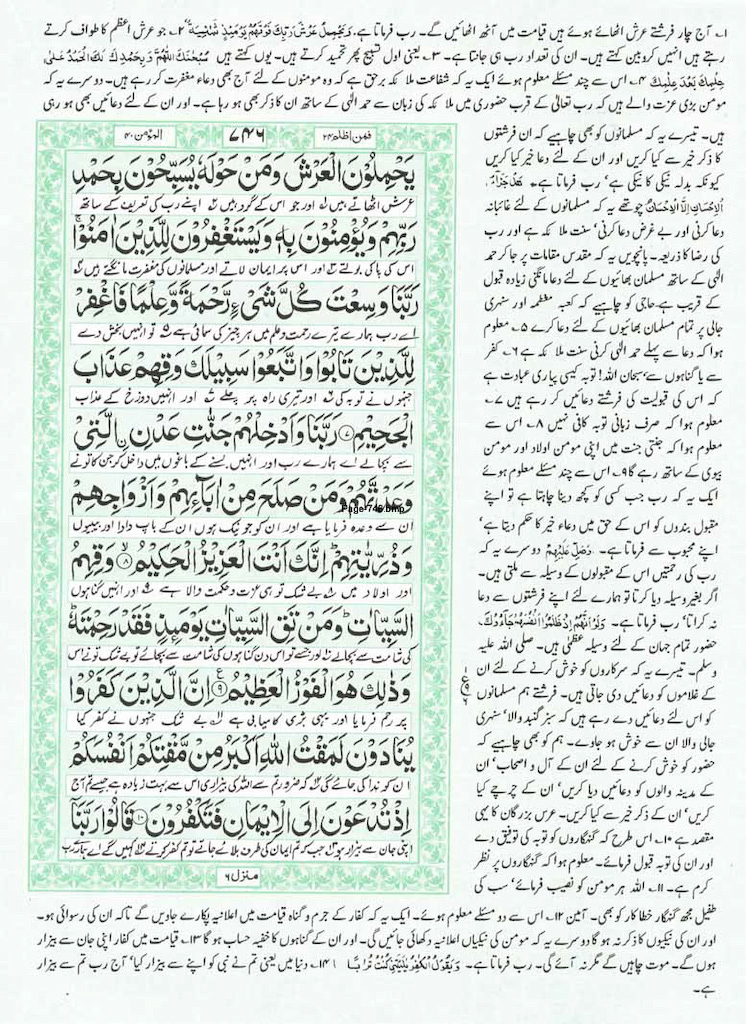 ۱۔ آج چار فرشتے عرش اٹھائے ہوئے ہیں قیامت میں آٹھ اٹھائیں گے۔ رب فرماتا ہے۔ وَیَحْمِلُ عَرْشَ رَبِّكَ فَوْقَهُمْ یَوْمَئِذٍ ثَمٰنِیَةٌ ۲۔ جو عرش اعظم کا طواف کرتے
رہتے ہیں انہیں کروبین کہتے ہیں۔ ان کی تعداد رب ہی جانتا ہے۔ ۳۔ یعنی اول تسبیح پھر تحمید کرتے ہیں۔ یوں کہتے ہیں سُبْحٰنَكَ اللّٰهُمَّ وَبِحَمْدِكَ لَكَ الْحَمْدُ عَلٰی
حِلْمِكَ بَعْدَ عِلْمِكَ ۴۔ اس سے چند مسئلے معلوم ہوئے ایک یہ کہ شفاعت ملا ئکہ برحق ہے کہ وہ مومنوں کے لئے آج بھی دعاء مغفرت کر رہے ہیں۔ دوسرے یہ کہ
مومن بڑی عزت والے ہیں کہ رب تعالیٰ کے قرب حضوری میں ملا ئکہ کی زبان سے حمد الٰہی کے ساتھ ان کا ذکر بھی ہو رہا ہے۔ اور ان کے لئے دعائیں بھی ہو رہی
ہیں۔ تیسرے یہ کہ مسلمانوں کو بھی چاہیے کہ ان فرشتوں
کا ذکر خیر سے کیا کریں اور ان کے لئے دعا خیر کیا کریں
کیونکہ بدلہ نیکی کا نیکی ہے‘ رب فرماتا ہے۔ هَلْ جَزَآءُ
الْاِحْسَانِ اِلَّا الْاِحْسَانُ چوتھے یہ کہ مسلمانوں کے لئے غائبانہ
دعا کرنی اور بے غرض دعا کرنی‘ سنت ملا ئکہ ہے اور رب
کی رضا کا ذریعہ۔ پانچویں یہ کہ مقدس مقامات پر جا کر حمد
الٰہی کے ساتھ مسلمان بھائیوں کے لئے دعا مانگنی زیادہ قبول
کے قریب ہے۔ حاجی کو چاہیے کہ کعبہ معظمہ اور سنہری
جالی پر تمام مسلمان بھائیوں کے لئے دعا کرے ۵۔ معلوم
ہوا کہ دعا سے پہلے حمد الٰہی کرنی سنت ملا ئکہ ہے ۶۔ کفر
سے یا گناہوں سے‘ سبحان اللہ! توبہ کیسی پیاری عبادت ہے
کہ اس کی قبولیت کی فرشتے دعائیں کر رہے ہیں ۷۔
معلوم ہوا کہ صرف زبانی توبہ کافی نہیں ۸۔ اس سے
معلوم ہوا کہ جنتی جنت میں اپنی مومن اولاد اور مومن
بیوی کے ساتھ رہے گا ۹۔ اس سے چند مسئلے معلوم ہوئے
ایک یہ کہ رب جب کسی کو کچھ دینا چاہتا ہے تو اپنے
مقبول بندوں کو اس کے حق میں دعاء خیر کا حکم دیتا ہے‘
اپنے محبوب سے فرماتا ہے۔ وَصَلِّ عَلَیْهِمْ دوسرے یہ کہ
رب کی رحمتیں اس کے مقبولوں کے وسیلہ سے ملتی ہیں۔
اگر بغیر وسیلہ دیا کرتا تو ہمارے لئے اپنے فرشتوں سے دعا
نہ کراتا‘ رب فرماتا ہے۔ وَلَوْ اَنَّهُمْ اِذْ ظَّلَمُوْا اَنْفُسَهُمْ جَآءُوْكَ
حضور تمام جہان کے لئے وسیلہ عظمٰی ہیں۔ صلی اللہ علیہ
وسلم۔ تیسرے یہ کہ سرکاروں کو خوش کرنے کے لئے ان
کے غلاموں کو دعائیں دی جاتی ہیں۔ فرشتے ہم مسلمانوں
کو اس لئے دعائیں دے رہے ہیں کہ سبز گنبد والا‘ سنہری
جالی والا ان سے خوش ہو جاوے۔ ہم کو بھی چاہیے کہ
حضور کو خوش کرنے کے لئے ان کے آل و اصحاب‘ ان
کے مدینہ والوں کو دعائیں دیا کریں‘ ان کے چرچے کیا
کریں‘ ان کے ذکر خیر سے کیا کریں۔ عرس بزرگان کا یہی
مقصد ہے ۱۰۔ اس طرح کہ گنہگاروں کو توبہ کی توفیق دے
اور ان کی توبہ قبول فرمائے۔ معلوم ہوا کہ گنہگاروں پر نظر
کرم ہے۔ ۱۱۔ اللہ ہر مومن کو نصیب فرمائے‘ سب کی
المؤمن ۴۰
۷۴۶
فمن اظلم ۲۴
یَحْمِلُوْنَ الْعَرْشَ وَمَنْ حَوْلَهٗ یُسَبِّحُوْنَ بِحَمْدِ
عرش اٹھاتے ہیں ۱ اور جو اس کے گرد ہیں ۲ اپنے رب کی تعریف کے ساتھ
رَبِّهِمْ وَیُؤْمِنُوْنَ بِهٖ وَیَسْتَغْفِرُوْنَ لِلَّذِیْنَ اٰمَنُوْا ۚ
اس کی پاکی بولتے ۳ اور اس پر ایمان لاتے اور مسلمانوں کی مغفرت مانگتے ہیں ۴
رَبَّنَا وَسِعْتَ كُلَّ شَیْءٍ رَّحْمَةً وَّعِلْمًا فَاغْفِرْ
اے رب ہمارے تیرے رحمت و علم میں ہر چیز کی سمائی ہے ۵ تو انہیں بخش دے
لِلَّذِیْنَ تَابُوْا وَاتَّبَعُوْا سَبِیْلَكَ وَقِهِمْ عَذَابَ
جنہوں نے توبہ کی ۶ اور تیری راہ پر چلے ۷ اور انہیں دوزخ کے عذاب
الْجَحِیْمِ ۷ رَبَّنَا وَاَدْخِلْهُمْ جَنّٰتِ عَدْنِ ِۨالَّتِیْ
سے بچالے اے ہمارے رب اور انہیں بسنے کے باغوں میں داخل کر جن کا تو نے
وَعَدْتَّهُمْ وَمَنْ صَلَحَ مِنْ اٰبَآئِهِمْ وَاَزْوَاجِهِمْ
Page-746.bmp
ان سے وعدہ فرمایا ہے اور ان کو جو نیک ہوں ان کے باپ دادا اور بیبیوں
وَذُرِّیّٰتِهِمْ ؕ اِنَّكَ اَنْتَ الْعَزِیْزُ الْحَكِیْمُ ۸ وَقِهِمُ
اور اولاد میں ۸ بے شک تو ہی عزت و حکمت والا ہے ۹ اور انہیں گناہوں
السَّیِّاٰتِ ؕ وَمَنْ تَقِ السَّیِّاٰتِ یَوْمَئِذٍ فَقَدْ رَحِمْتَهٗ ؕ
کی شامت سے بچالے ۱۰ اور جسے تو اس دن گناہوں کی شامت سے بچائے تو بے شک تو نے اس
وَذٰلِكَ هُوَ الْفَوْزُ الْعَظِیْمُ ۹ اِنَّ الَّذِیْنَ كَفَرُوْا
پر رحم فرمایا اور یہی بڑی کامیابی ہے ۱۱ بے شک جنہوں نے کفر کیا
یُنَادَوْنَ لَمَقْتُ اللّٰهِ اَكْبَرُ مِنْ مَّقْتِكُمْ اَنْفُسَكُمْ
ان کو ندا کی جائے گی ۱۲ کہ ضرور تم سے اللہ کی بیزاری اس سے بہت زیادہ ہے جیسے تم آج
اِذْ تُدْعَوْنَ اِلَی الْاِیْمَانِ فَتَكْفُرُوْنَ ۱۰ قَالُوْا رَبَّنَا
اپنی جان سے بیزار ہو ۱۳ جب کہ تم ایمان کی طرف بلائے جاتے تو تم کفر کرتے ۱۴ کہیں گے اے ہمارے رب
منزل ۶
طفیل مجھ گنہگار خطا کار کو بھی۔ آمین ۱۲۔ اس سے دو مسئلے معلوم ہوئے۔ ایک یہ کہ کفار کے جرم و گناہ قیامت میں اعلانیہ پکارے جاویں گے تاکہ ان کی رسوائی ہو۔
اور ان کی نیکیوں کا ذکر نہ ہو گا دوسرے یہ کہ مومن کی نیکیاں اعلانیہ دکھائی جائیں گی۔ اور ان کے گناہوں کا خفیہ حساب ہو گا ۱۳۔ قیامت میں کفار اپنی جان سے بیزار
ہوں گے۔ موت چاہیں گے مگر نہ آئے گی۔ رب فرماتا ہے۔ وَیَقُوْلُ الْكٰفِرُ یٰلَیْتَنِیْ كُنْتُ تُرٰبًا ۱۴۔ دنیا میں یعنی تم نے نبی کو اپنے سے بیزار کیا‘ آج رب تم سے بیزار
ہے۔